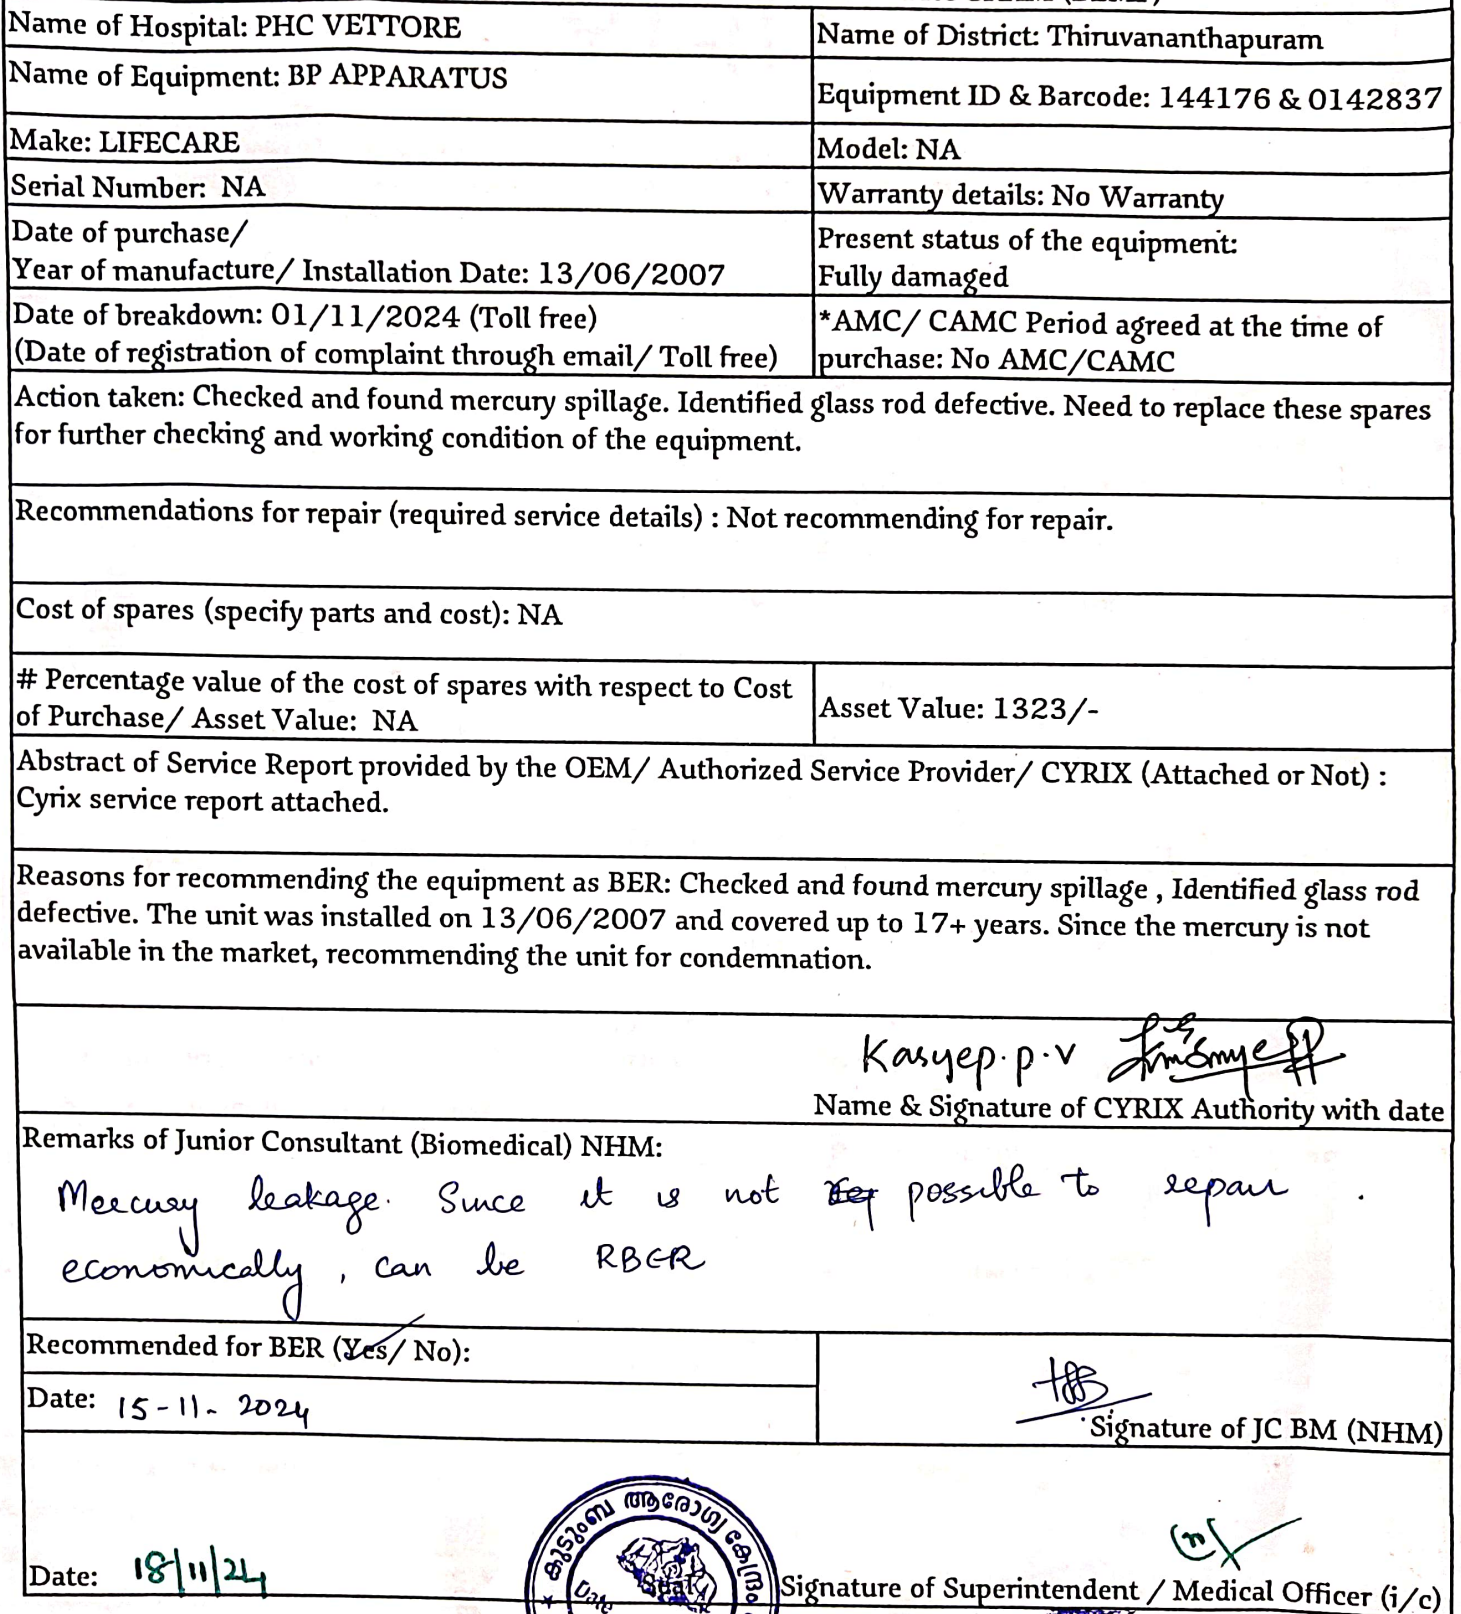 Name of Hospital: PHC VETTORE
Name of District: Thiruvananthapuram
Name of Equipment: BP APPARATUS
Equipment ID & Barcode: 144176 & 0142837
Make: LIFECARE
Model: NA
Serial Number: NA
Warranty details: No Warranty
Date of purchase/
Year of manufacture/ Installation Date: 13/06/2007
Present status of the equipment:
Fully damaged
Date of breakdown: 01/11/2024 (Toll free)
(Date of registration of complaint through email/ Toll free)
*AMC/ CAMC Period agreed at the time of
purchase: No AMC/CAMC
Action taken: Checked and found mercury spillage. Identified glass rod defective. Need to replace these spares
for further checking and working condition of the equipment.
Recommendations for repair (required service details) : Not recommending for repair.
Cost of spares (specify parts and cost): NA
# Percentage value of the cost of spares with respect to Cost
of Purchase/ Asset Value: NA
Asset Value: 1323/-
Abstract of Service Report provided by the OEM/ Authorized Service Provider/ CYRIX (Attached or Not) :
Cyrix service report attached.
Reasons for recommending the equipment as BER: Checked and found mercury spillage , Identified glass rod
defective. The unit was installed on 13/06/2007 and covered up to 17+ years. Since the mercury is not
available in the market, recommending the unit for condemnation.
Kasyep.p.v
Name & Signature of CYRIX Authority with date
Remarks of Junior Consultant (Biomedical) NHM:
Mercury leakage. Since it is not possible to repair
economically, can be RBER
Recommended for BER (Yes/ No):
Date: 15-11-2024
Signature of JC BM (NHM)
കുടുംബ ആരോഗ്യ കേന്ദ്രം
Date
Seal
Date: 18/11/24
Signature of Superintendent / Medical Officer (i/c)